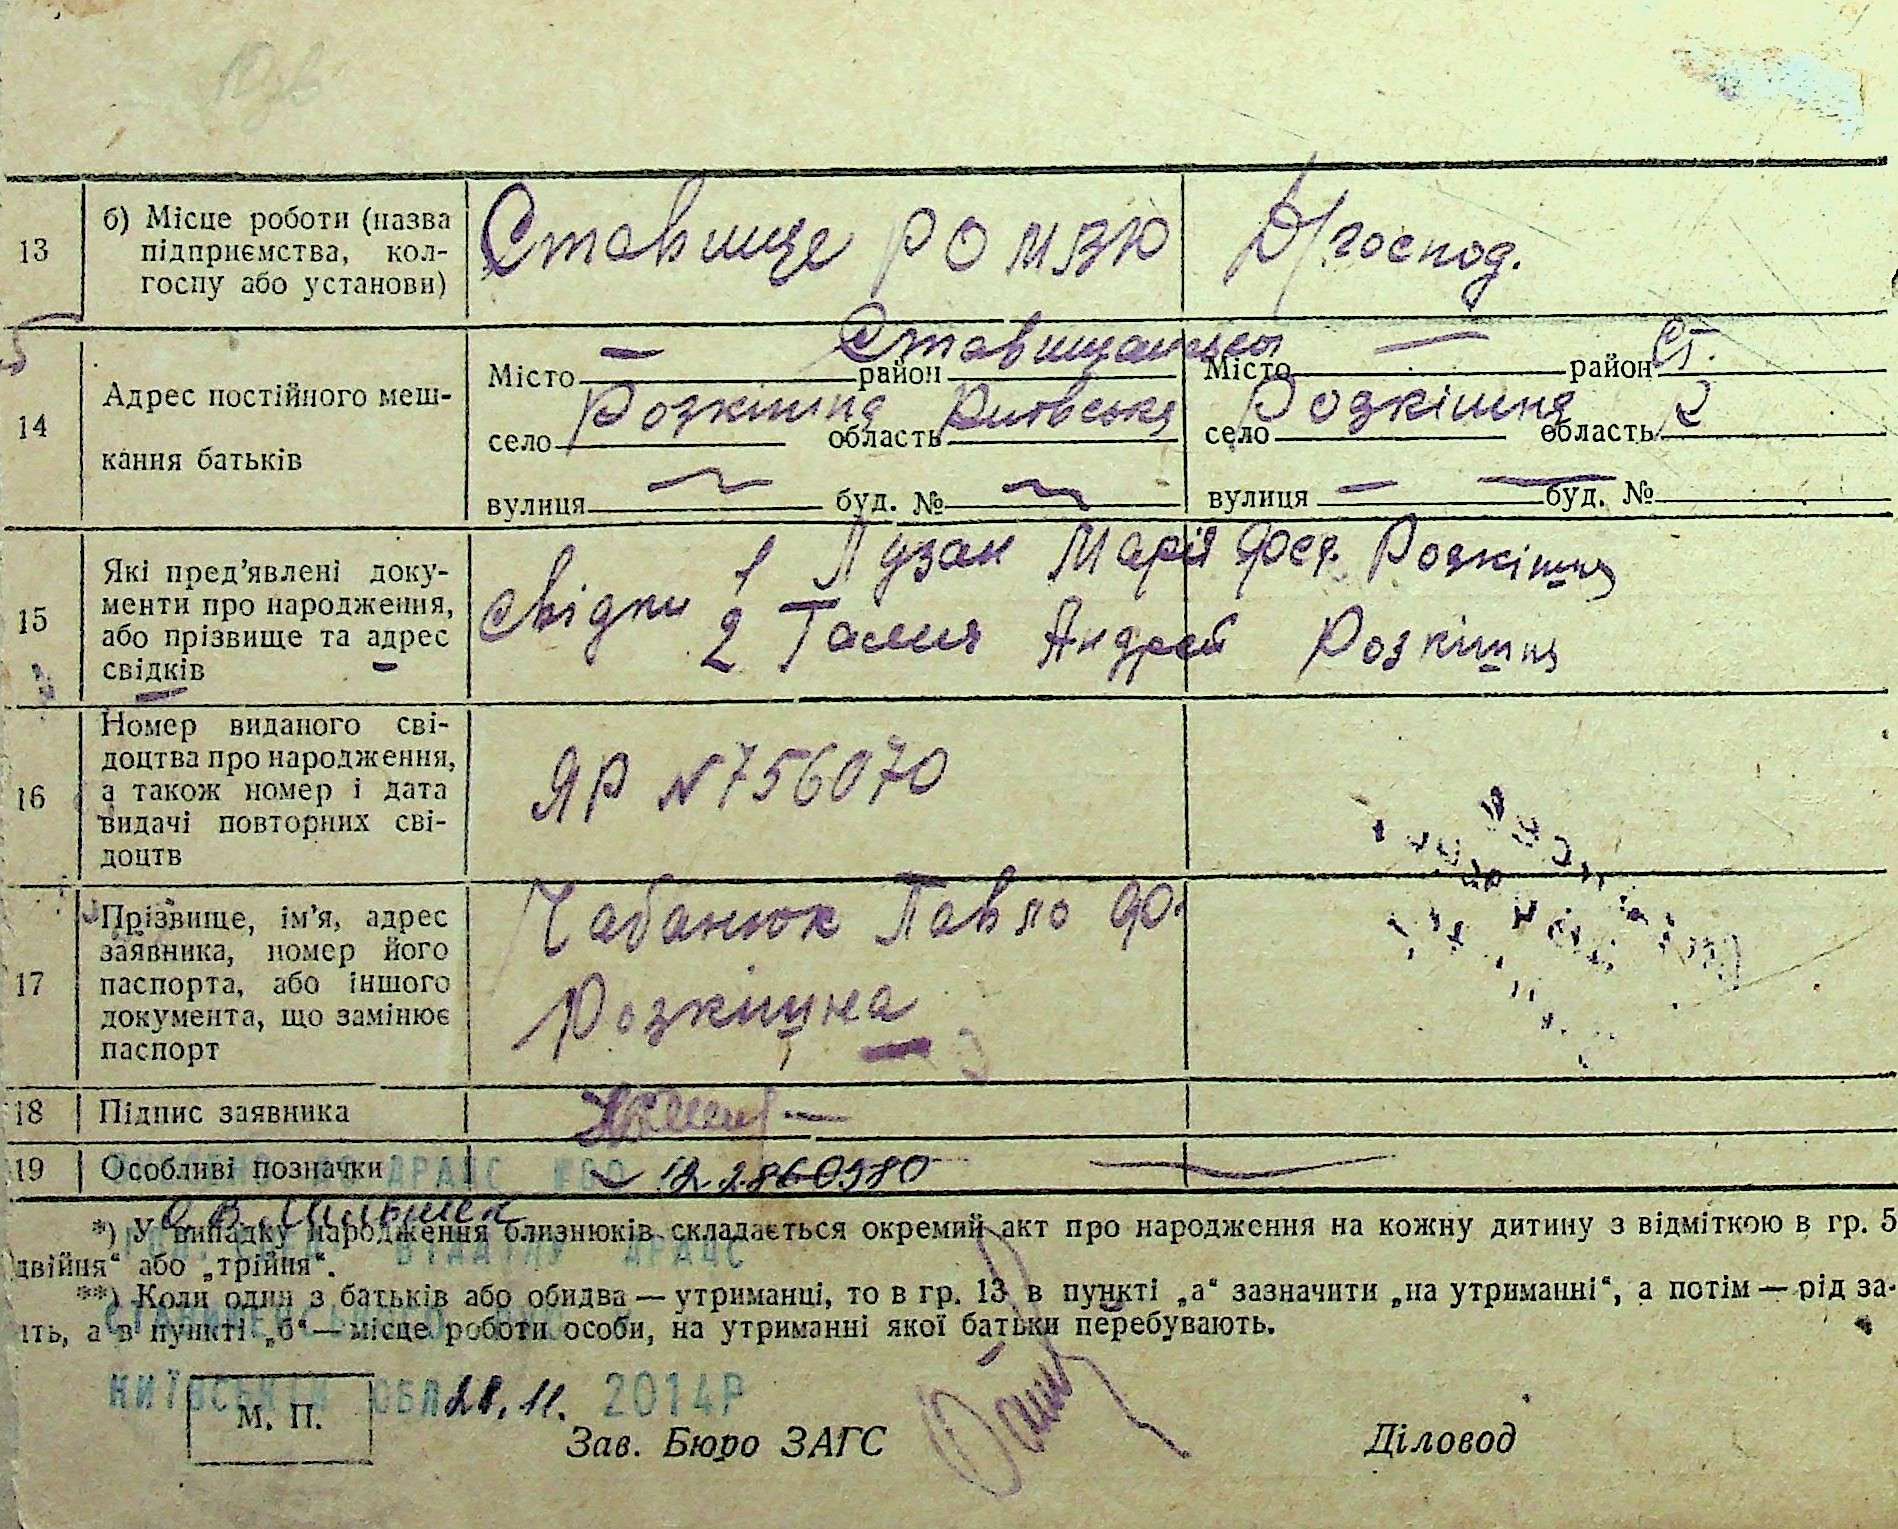 13 б) Місце роботи (назва підприємства, колгоспу або установи) Ставище Д/господ.
14 Адрес постійного мешкання батьків
Місто — район Ставищанськ Місто — район Ст.
село Розкішна область Київська село Розкішна область К
вулиця — буд. № — вулиця — буд. №
15 Які пред’явлені документи про народження, або прізвище та адрес свідків
Свідки 1 Пузан Марія Фед. Розкішна
2 Андрей Розкішна
16 Номер виданого свідоцтва про народження, а також номер і дата видачі повторних свідоцтв
ЯР № 756070
17 Прізвище, ім’я, адрес заявника, номер його паспорта, або іншого документа, що замінює паспорт
Чабанюк Павло Ф.
Розкишна
18 Підпис заявника
19 Особливі позначки
ДРАЦС
*) У випадку народження близнюків складається окремий акт про народження на кожну дитину з відміткою в гр. 5
двійня“ або „трійня“.
ВІДДІЛУ ДРАЦС
**) Коли один з батьків або обидва — утриманці, то в гр. 13 в пункті „а“ зазначити „на утриманні“, а потім — рід за-
ть, а в пункті „б“ — місце роботи особи, на утриманні якої батьки перебувають.
КИЇВСЬКІЙ ОБЛ 28.11. 2014Р
М. П.
Зав. Бюро ЗАГС Діловод